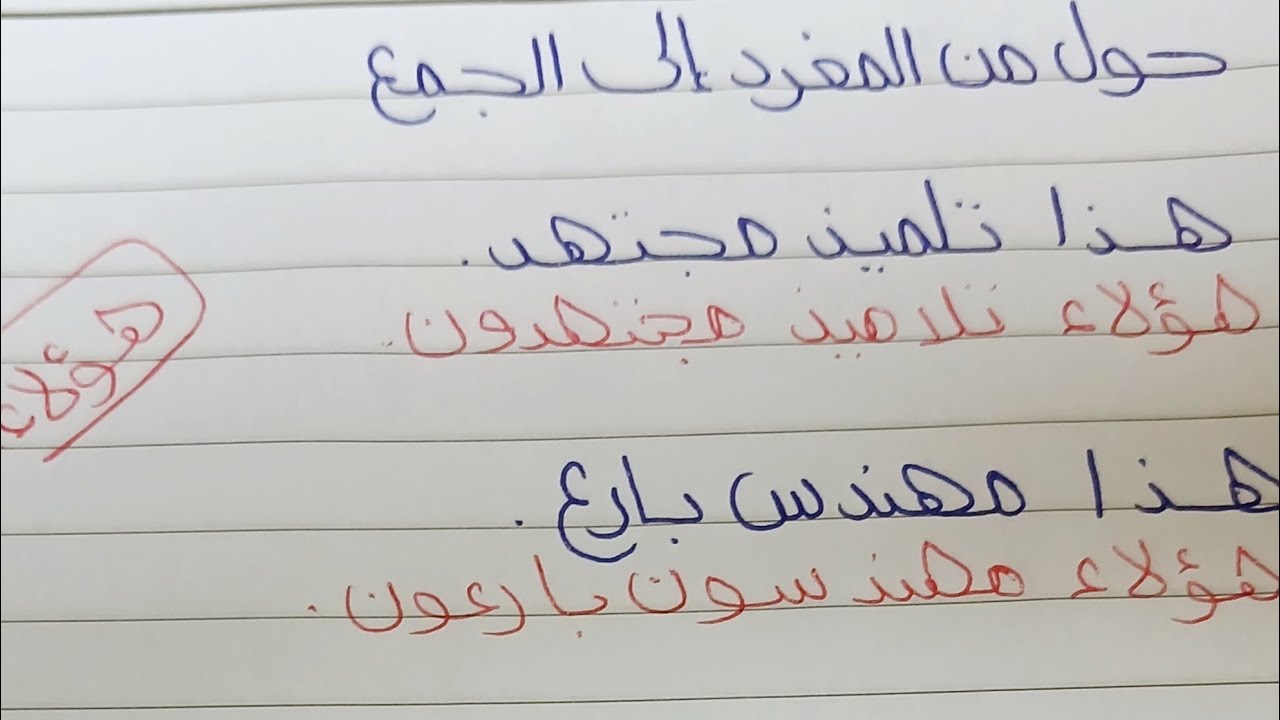 حول من المفرد إلى الجمع
هذا تلميذ مجتهد.
هؤلاء تلاميذ مجتهدون.
هؤلاء
هذا مهندس بارع.
هؤلاء مهندسون بارعون.